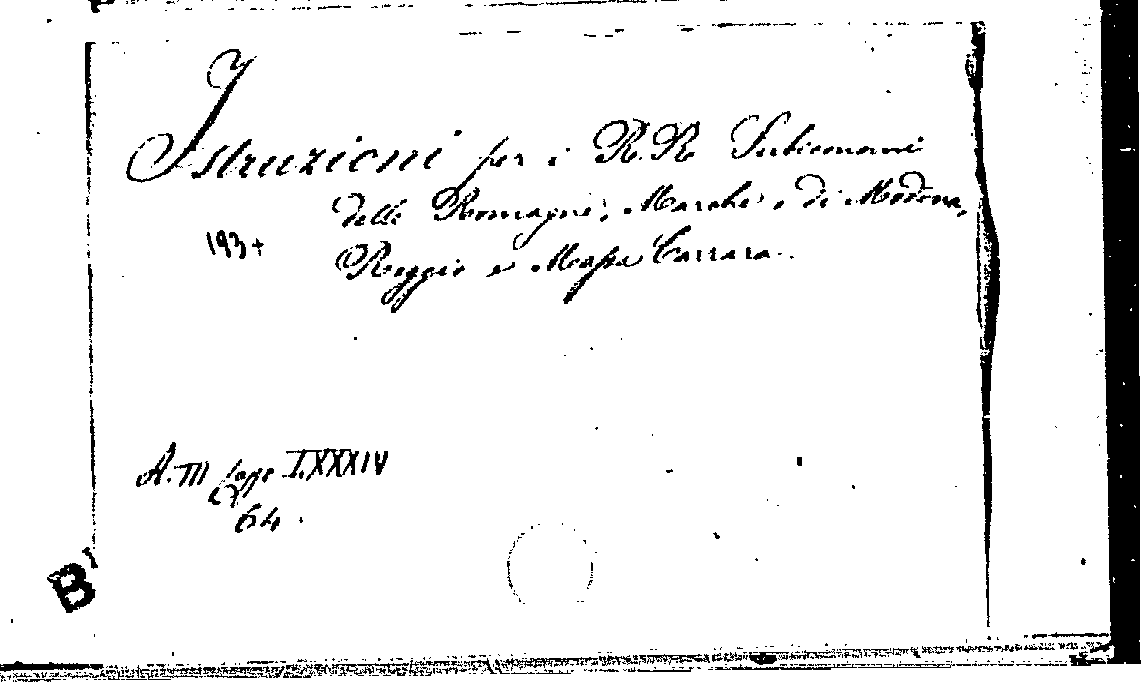 Istruzioni per i R.R. Subeconomi
delle Romagne, Marche e di Modena,
193+
Reggio e Massa Carrara.
A. III Capp LXXXIV
64.
B